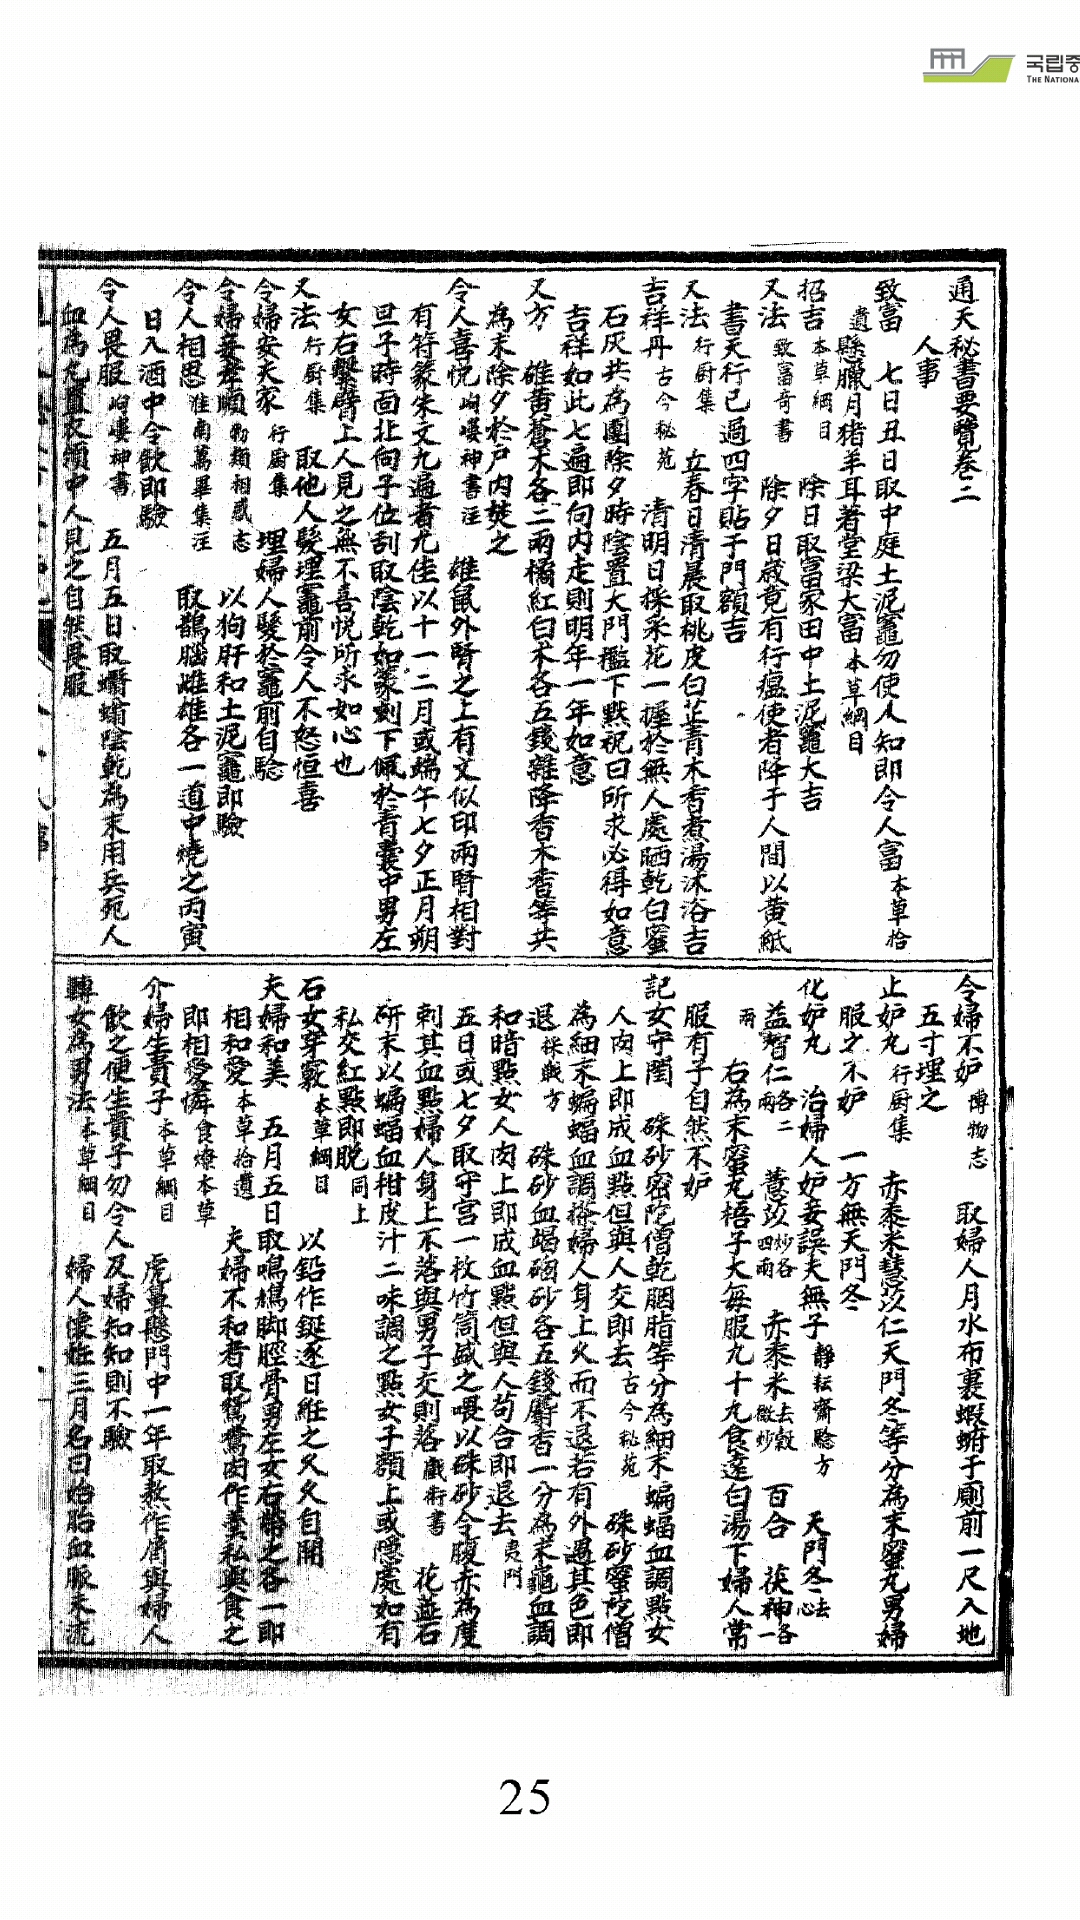 국립중
THE NATIONA
通天秘書要覽卷二
人事
致富 七日丑日取中庭土泥竈勿使人知即令人富 本草拾
遺 懸臘月猪羊耳著堂梁大富 本草綱目
招吉 本草綱目 除日取富家田中土泥竈大吉
又法 致富奇書 除夕日歲竟有行瘟使者降于人間以黄紙
書天行已過四字貼于門額吉
又法 行厨集 立春日清晨取桃皮白芷青木香煮湯沐浴吉
吉祥丹 古今秘苑 清明日採采花一握於無人處晒乾白蜜
石灰共為團除夕時陰置大門檻下黙祝曰所求必得如意
吉祥如此七遍即向內走則明年一年如意
又方 雄黄蒼木各二兩橘紅白木各五錢雜降香木香等共
為末除夕於戶內焚之
令人喜悅 岣嶁神書注 雄鼠外腎之上有文似印兩腎相對
有符篆朱文九遍者尤佳以十一二月或端午七夕正月朔
旦子時面北向子位刮取陰乾如篆刻下佩於青囊中男左
女右繫臂上人見之無不喜悅所求如心也
又法 行厨集 取他人髮埋竈前令人不怒恒喜
令婦安夫家 行厨集 埋婦人髮於竈前自驗
令婦妾孝順 物類相感志 以狗肝和土泥竈即驗
令人相思 淮南萬畢集注 取鵲腦雌雄各一道中燒之丙寅
日入酒中令飮即驗
令人畏服 岣嶁神書 五月五日取蠨蛸陰乾為末用兵死人
血為丸置衣領中人見之自然畏服
令婦不妒 博物志 取婦人月水布裹蝦蟆于廁前一尺入地
五寸埋之
止妒丸 行厨集 赤黍米薏苡仁天門冬等分為末蜜丸男婦
服之不妒 一方無天門冬
化妒丸 治婦人妒妾誤夫無子 靜耘齋驗方 天門冬去心
益智仁各二兩 薏苡炒各四兩 赤黍米去穀微炒 百合 茯神各一
兩 右為末蜜丸梧子大每服九十九食遠白湯下婦人常
服有子自然不妒
記女守閨 硃砂密陀僧乾胭脂等分為細末蝙蝠血調點女
人肉上即成血點但與人交即去 古今秘苑 硃砂蜜陀僧
為細末蝙蝠血調搽婦人身上火而不退若有外遇其色即
退 採戰方 硃砂血竭硇砂各五錢麝香一分為末龜血調
和暗點女人肉上即成血點但與人苟合即退去 夷門
五日或七夕取守宮一枚竹筒盛之喂以硃砂令腹赤為度
刺其血點婦人身上不落與男子交則落 戲術書 花蕋石
研末以蝙蝠血柑皮汁二味調之點女子頦上或隱處如有
私交紅點即脫 同上
石女穿竅 本草綱目 以鉛作鋌逐日紝之久久自開
夫婦和美 五月五日取鳴鳩脚脛骨男左女右帶之各一即
相和愛 本草拾遺 夫婦不和者取鴛鴦肉作羹私與食之
即相愛憐 食療本草
介婦生貴子 本草綱目 虎鼻懸門中一年取熬作屑與婦人
飮之便生貴子勿令人及婦知知則不驗
轉女為男法 本草綱目 婦人懷姙三月名曰始胎血脈未流
25